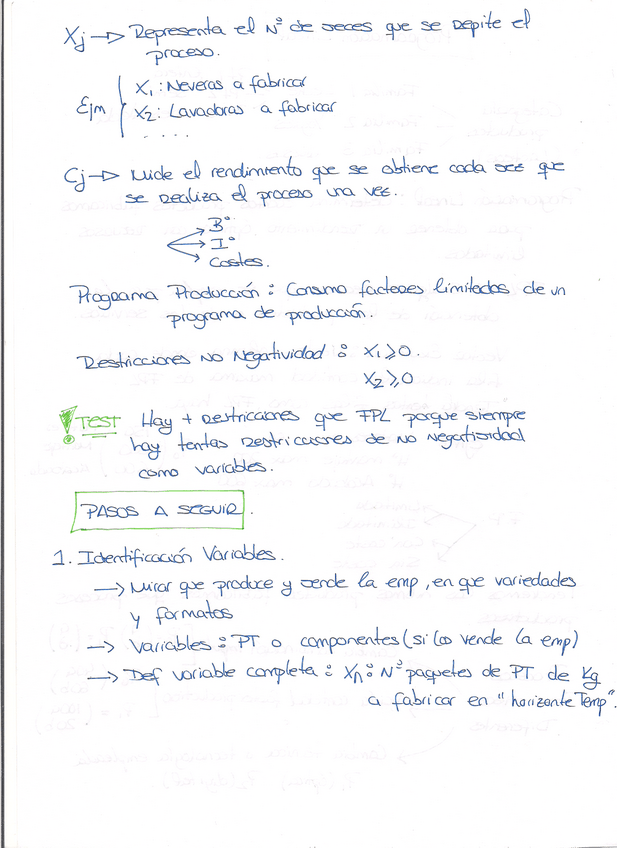 Xj → Representa el Nº de veces que se repite el
proceso.
Ejm { X₁: Neveras a fabricar
X₂: Lavadoras a fabricar
. . . .
Cj → Mide el rendimiento que se obtiene cada vez que
se realiza el proceso una vez.
Bº
Iº
Costes.
Programa Producción: Consumo factores limitados de un
programa de producción.
Restricciones No Negatividad: X₁ ≥ 0.
X₂ ≥ 0
! TEST Hay + restricciones que FPL porque siempre
hay tantas restricciones de no negatividad
como variables.
PASOS A SEGUIR.
1. Identificación Variables.
→ Mirar que produce y vende la emp, en que variedades
y formatos
→ Variables: PT o componentes (si los vende la emp)
→ Def variable completa: Xn: Nº paquetes de PT de Kg
a fabricar en "horizonte Temp".